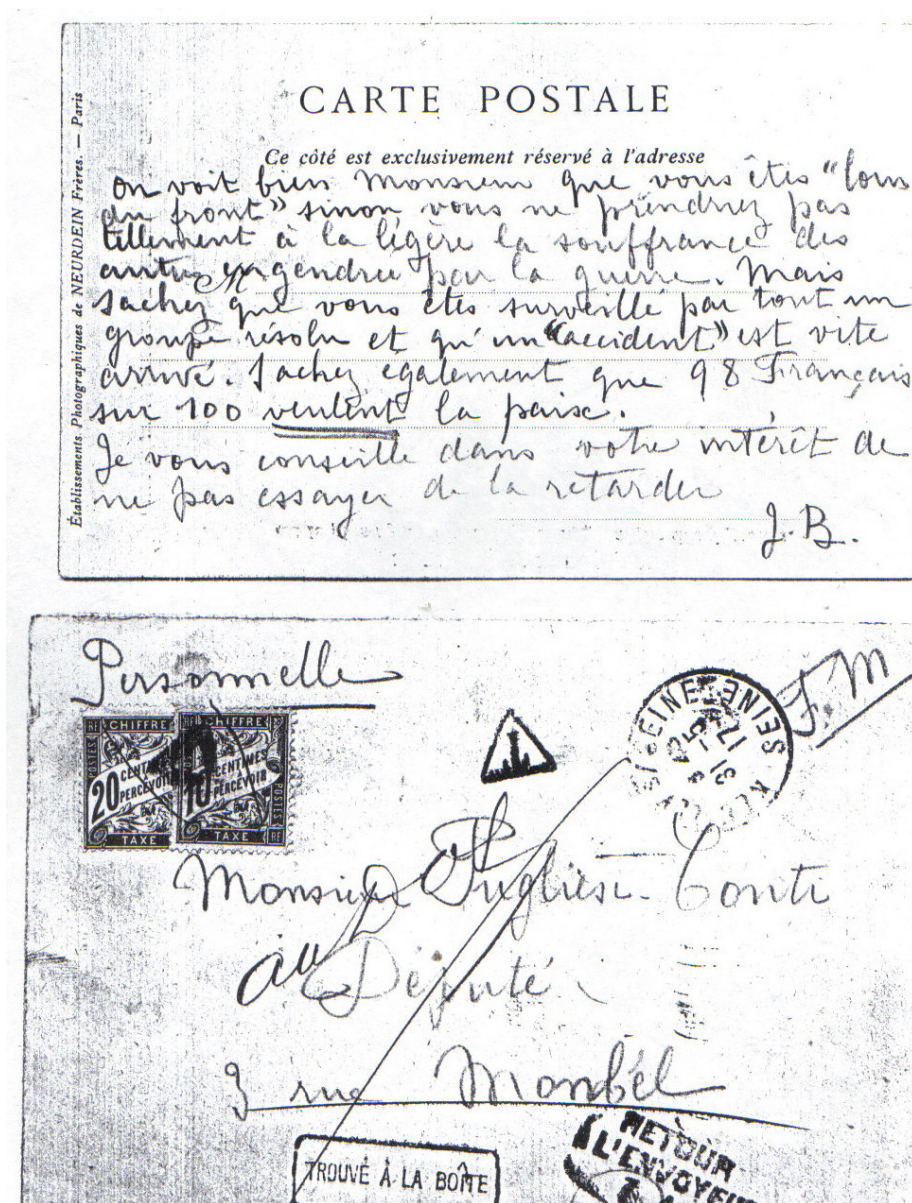 CARTE POSTALE
Ce côté est exclusivement réservé à l'adresse
Établissements Photographiques de NEURDEIN Frères. — Paris
On voit bien Monsieur que vous êtes "loin
du front" sinon vous ne prendriez pas
tellement à la légère la souffrance des
autres engendrée par la guerre. Mais
sachez que vous êtes surveillé par tout un
groupe résolu et qu'un "accident" est vite
arrivé. Sachez également que 98 Français
sur 100 veulent la paix.
Je vous conseille dans votre intérêt de
ne pas essayer de la retarder
J.B.
Personnelle
F.M
POSTES RF CHIFFRE
20 CENTIMES
PERCEVOIR
TAXE
RF CHIFFRE
10 CENTIMES
PERCEVOIR
TAXE
POSTES RF
SEINE SEINE
17
5
31
Monsieur Pugliesi-Conti
au
Député
3 rue Monbel
TROUVÉ À LA BOÎTE
RETOUR
À L'ENVOYEUR